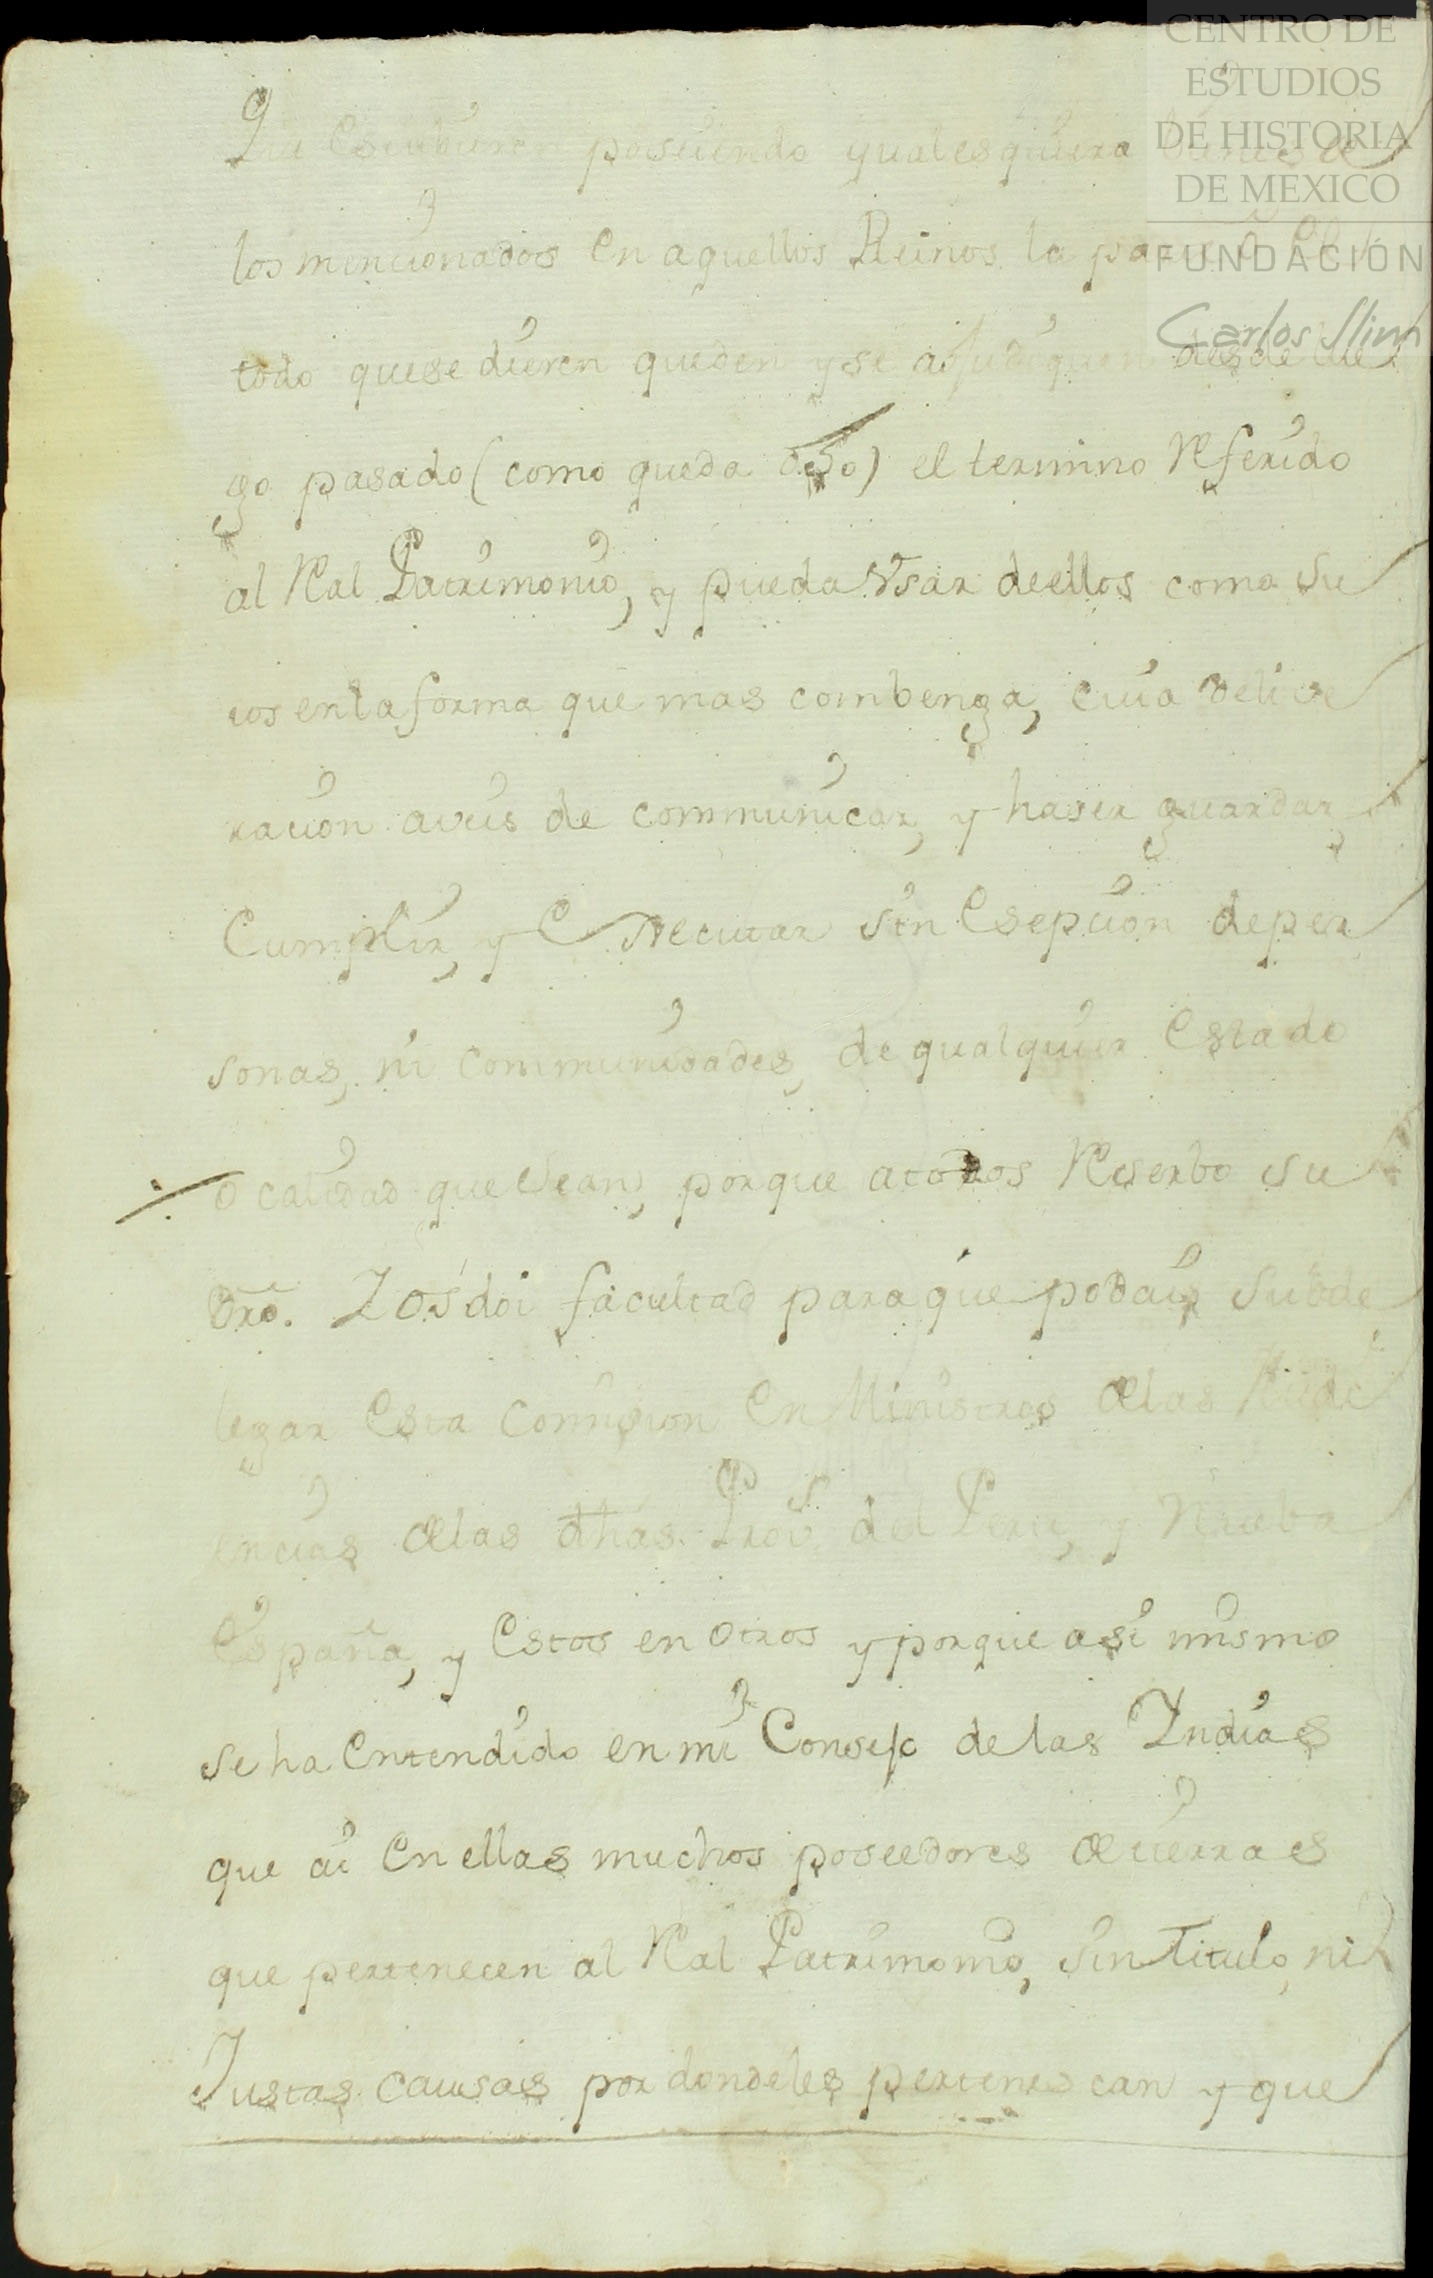 CENTRO DE
ESTUDIOS
DE HISTORIA
DE MEXICO
FUNDACIÓN
Carlos Slim
Que Estubieren poseiendo qualesquiera bienes de
los mencionados en aquellos Reinos la
todo que se dieren queden y se adjudiquen desde lue
go pasado (como queda dho) el termino Referido
al Real Patrimonio, y pueda Vsar deellos como su
ios enla forma que mas combenga, cuia delive
racion aveis de communicar, y haser guardar
Cumplir, y Executar sin Esepcion deper
sonas, ni communidades, de qualquier Estado
o calidad que sean, porque atodos Reserbo su
dro. Yosdoi facultad paraque podais subde
legar Esta Comision En Ministros delas Audi
encias delas dhas. Provs. del Peru, y Nueba
España, y Estos en otros y porque asi mismo
se ha Entendido en mi Consejo de las Yndias
que ai En ellas muchos poseedores de tierras
que pertenecen al Real Patrimonio, sin Titulo, ni
Justas causas por dondeles pertenescan y que